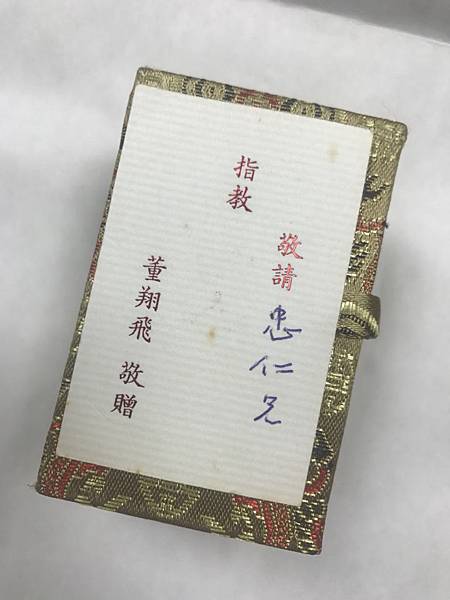 敬請忠仁兄
指教
董翔飛 敬贈